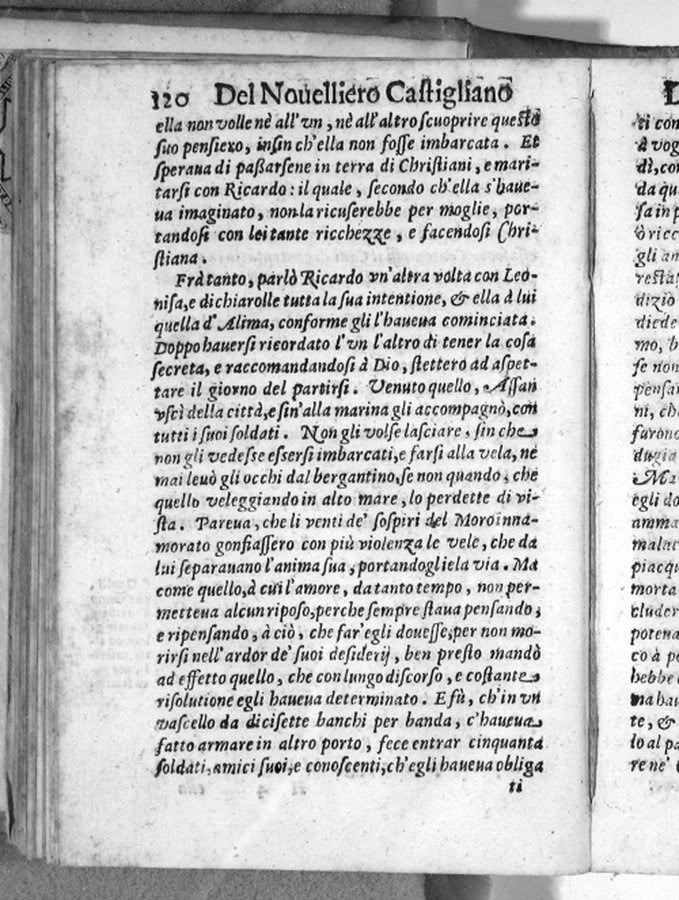 120 Del Nouelliero Castigliano
ella non volle nè all'vn, nè all'altro scuoprire questo
suo pensiero, insin ch'ella non fosse imbarcata. Et
speraua di paßarsene in terra di Christiani, e mari-
tarsi con Ricardo: il quale, secondo ch'ella s'haue-
ua imaginato, non la ricuserebbe per moglie, por-
tandosi con lei tante ricchezze, e facendosi Chri-
stiana.
Frà tanto, parlò Ricardo vn'altra volta con Leo-
nisa, e dichiarolle tutta la sua intentione, & ella à lui
quella d'Alima, conforme gli l'haueua cominciata.
Doppo hauersi ricordato l'vn l'altro di tener la cosa
secreta, e raccomandandosi à Dio, stettero ad aspet-
tare il giorno del partirsi. Venuto quello, Assan
vscì della città, e sin'alla marina gli accompagnò, con
tutti i suoi soldati. Non gli volse lasciare, sin che
non gli vedesse essersi imbarcati, e farsi alla vela, nè
mai leuò gli occhi dal bergantino, se non quando, che
quello veleggiando in alto mare, lo perdette di vi-
sta. Pareua, che li venti de' sospiri del Moro inna-
morato gonfiassero con più violenza le vele, che da
lui separauano l'anima sua, portandogliela via. Ma
come quello, à cui l'amore, da tanto tempo, non per-
metteua alcun riposo, perche sempre staua pensando,
e ripensando, à ciò, che far'egli douesse, per non mo-
rirsi nell'ardor de' suoi desiderij, ben presto mandò
ad effetto quello, che con lungo discorso, e costante
risolutione egli haueua determinato. E fù, ch'in vn
vascello da dicisette banchi per banda, c'haueua
fatto armare in altro porto, fece entrar cinquanta
soldati, amici suoi, e conoscenti, ch'egli haueua obliga
ti